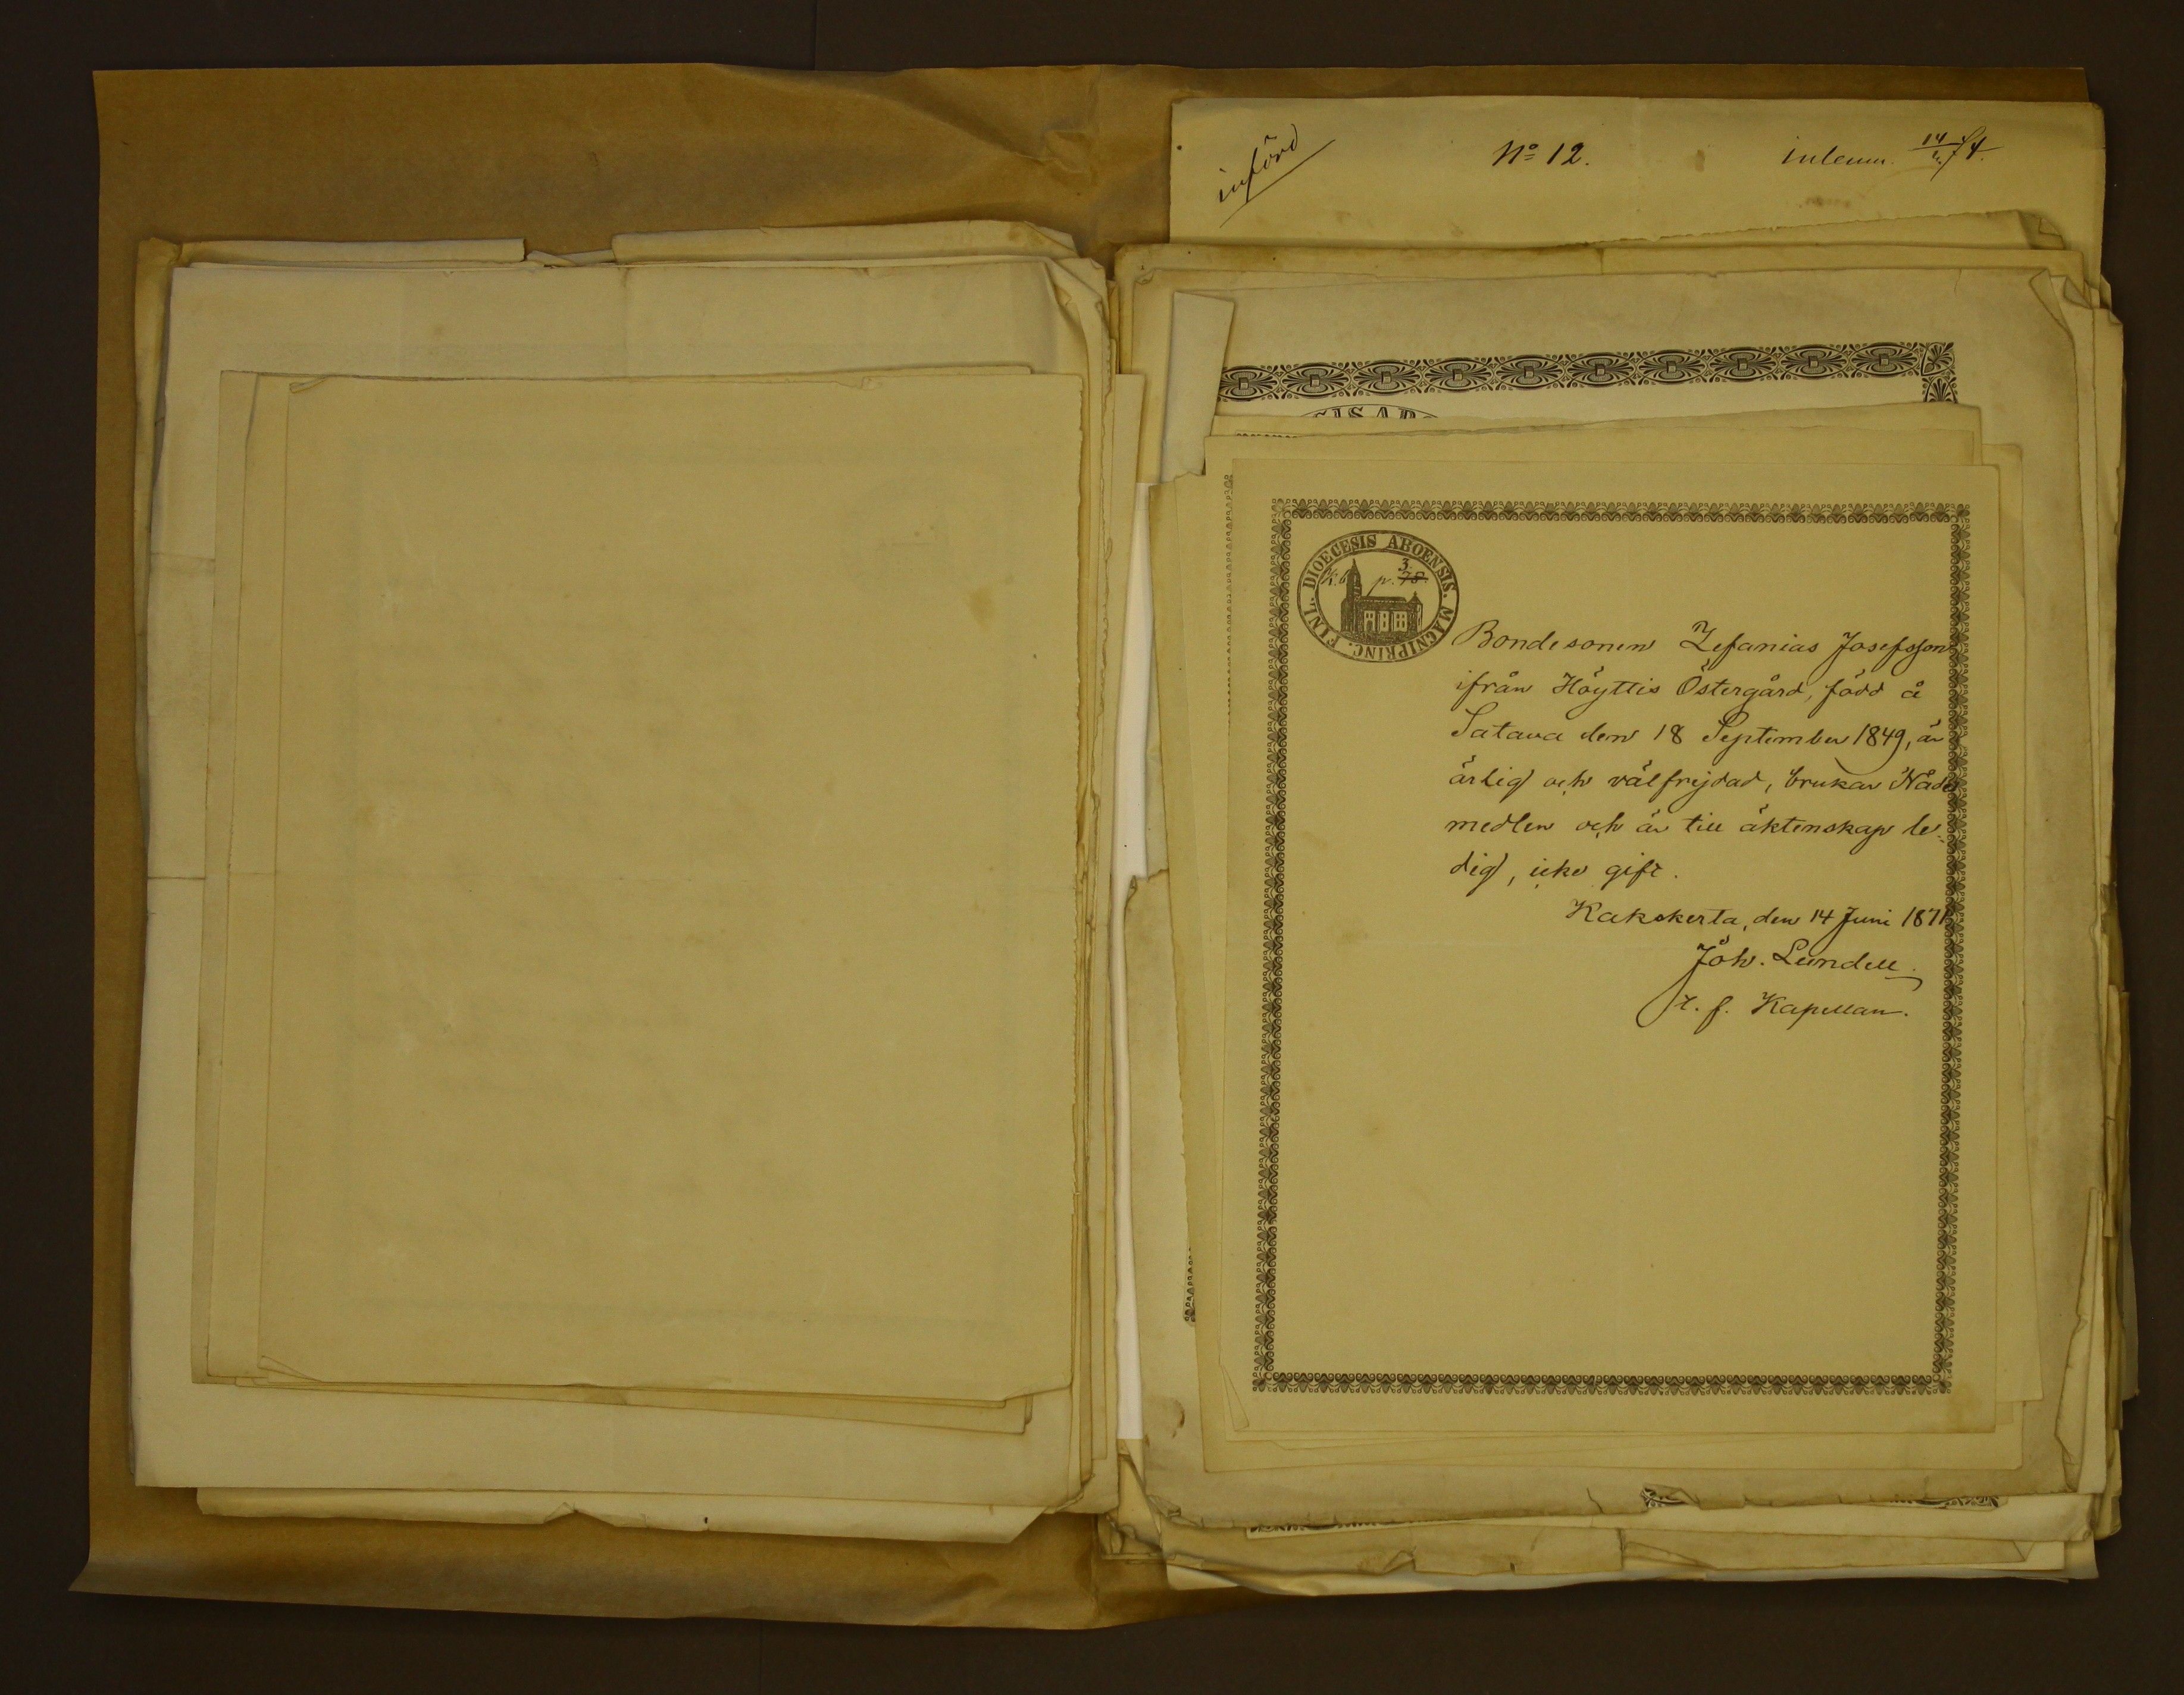 införd
No 12.
inlemn. 14/2.74.
SIS AB
DIOECESIS ABOENSIS. MAGNIPRINC. FINL.
K.6 p. 3. 78.
Bondesonen Zefanias Josefsson
ifrån Höyttis Östergård, född å
Satava den 18 September 1849, är
ärlig och välfrejdad, brukar Nåde
medlen och är till äktenskap le-
dig, icke gift.
Kakskerta, den 14 Juni 1871
Joh. Lundell.
t. f. Kapellan.